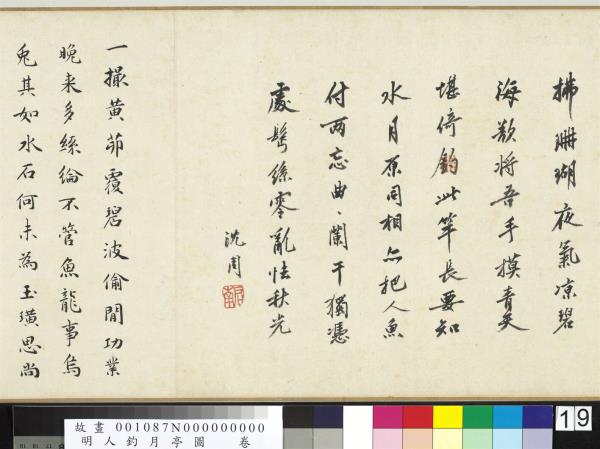 拂珊瑚夜氣凉碧
海欲將吾手摸青天
堪倚釣此竿長要知
水月原同相亦把人魚
付兩忘曲、闌干獨憑
處鬂絲零亂怯秋光
沈周
一撮黃茆覆碧波偷閒功業
晚來多絲綸不管魚龍事烏
兔其如水石何未為玉璜思尚
故畫 001087N000000000
明人釣月亭圖 卷
19